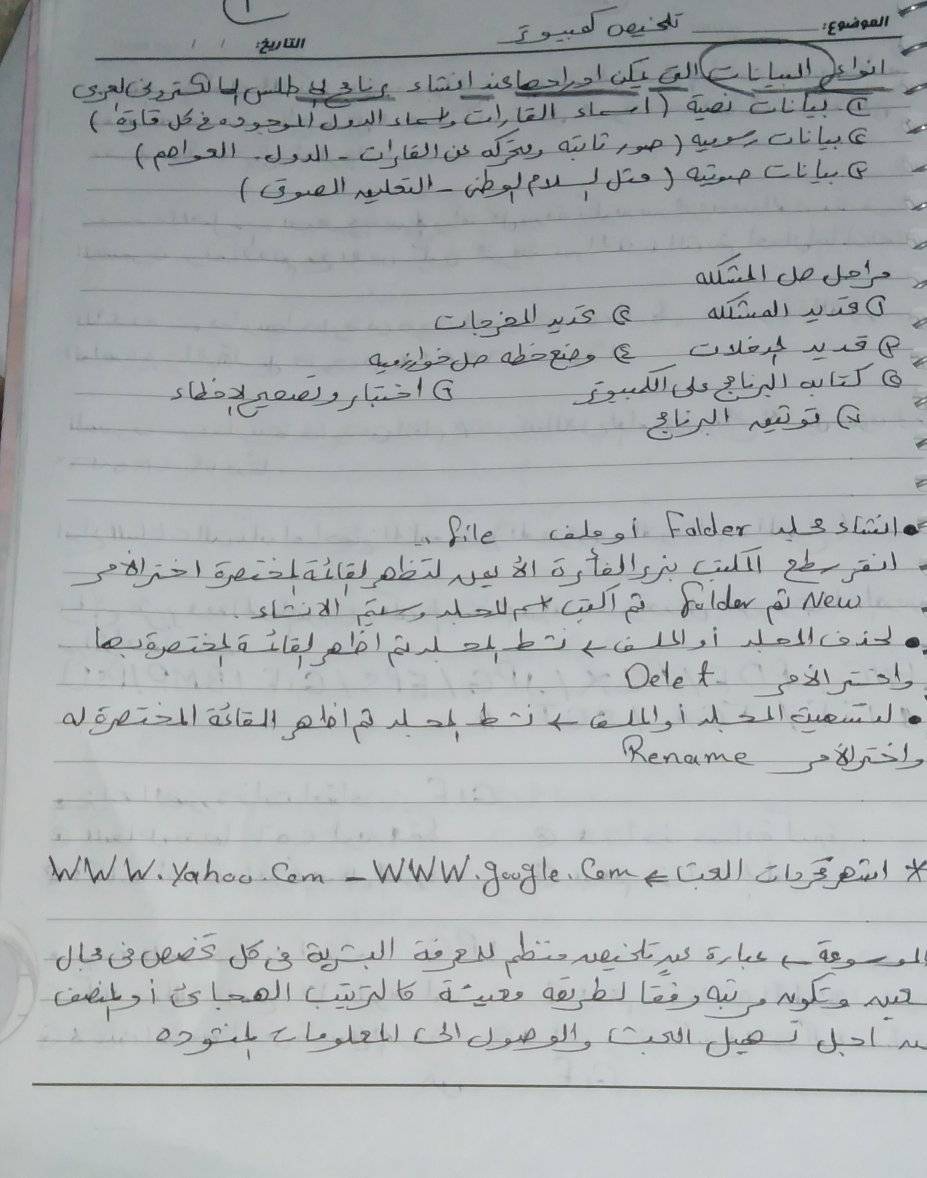 ١
الموضوع: تلخيص كمبيوتر
التاريخ: / /
انواع البيانات التى يمكن ادراجها عند انشاء برنامج اطلس الالكترونى لعربى
① بيانات نصية (اسماء القارات واسماء الدول الموجوده فى كل قارة)
② بيانات رسوميه (صور ثابته ومتحركه عن القارات - الدول - العواصم)
③ بيانات صوتيه (مثل السلام الوطنى - التعليق الصوتى)
مراحل حل المشكله
① تحديد المشكله ② تحديد المخرجات
③ تحديد المدخلات ④ وضع خطه حل خوارزميه
⑤ كتابه البرنامج على الكمبيوتر ⑥ اختبار وتصحيح الاخطاء
⑦ توثيق البرنامج
• انشاء مجلد Folder أو ملف file
انقر سطح المكتب بزر الفأرة الأيمن لتظهر القائمة المختصرة اختر الأمر
New ثم folder ثم اكتب اسم المجلد وسيتم الانشاء.
• لحذف المجلد أو الملف ← نشط المجلد ثم اظهر القائمة المختصرة بها
واختر الأمر Delet
• لتسمية المجلد أو الملف ← نشط المجلد ثم اظهر القائمة المختصرة له
واختر الأمر Rename
* اشهر محركات البحث ← WWW.google.Com - WWW.Yahoo.Com
الموسوعة ← عبارة عن تلخيص منظم للمعرفة البشرية فى كل تخصص فى مجال
معين وتكون مرتبه وفقا لطريقة معينة كالترتيب الهجائى أو المصنف
من اجل تسهيل البحث والوصول الى المعلومات المنشوده